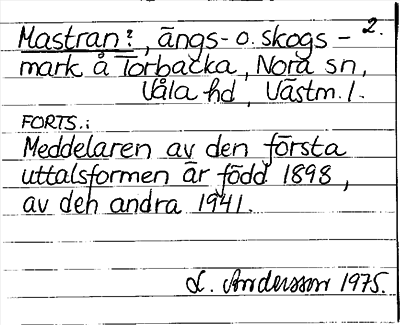 2.
Mastran:, ängs- o. skogs-
mark å Torbacka, Nora sn,
Våla hd, Västm. l.
FORTS.:
Meddelaren av den första
uttalsformen är född 1898,
av den andra 1941.
L. Andersson 1975.